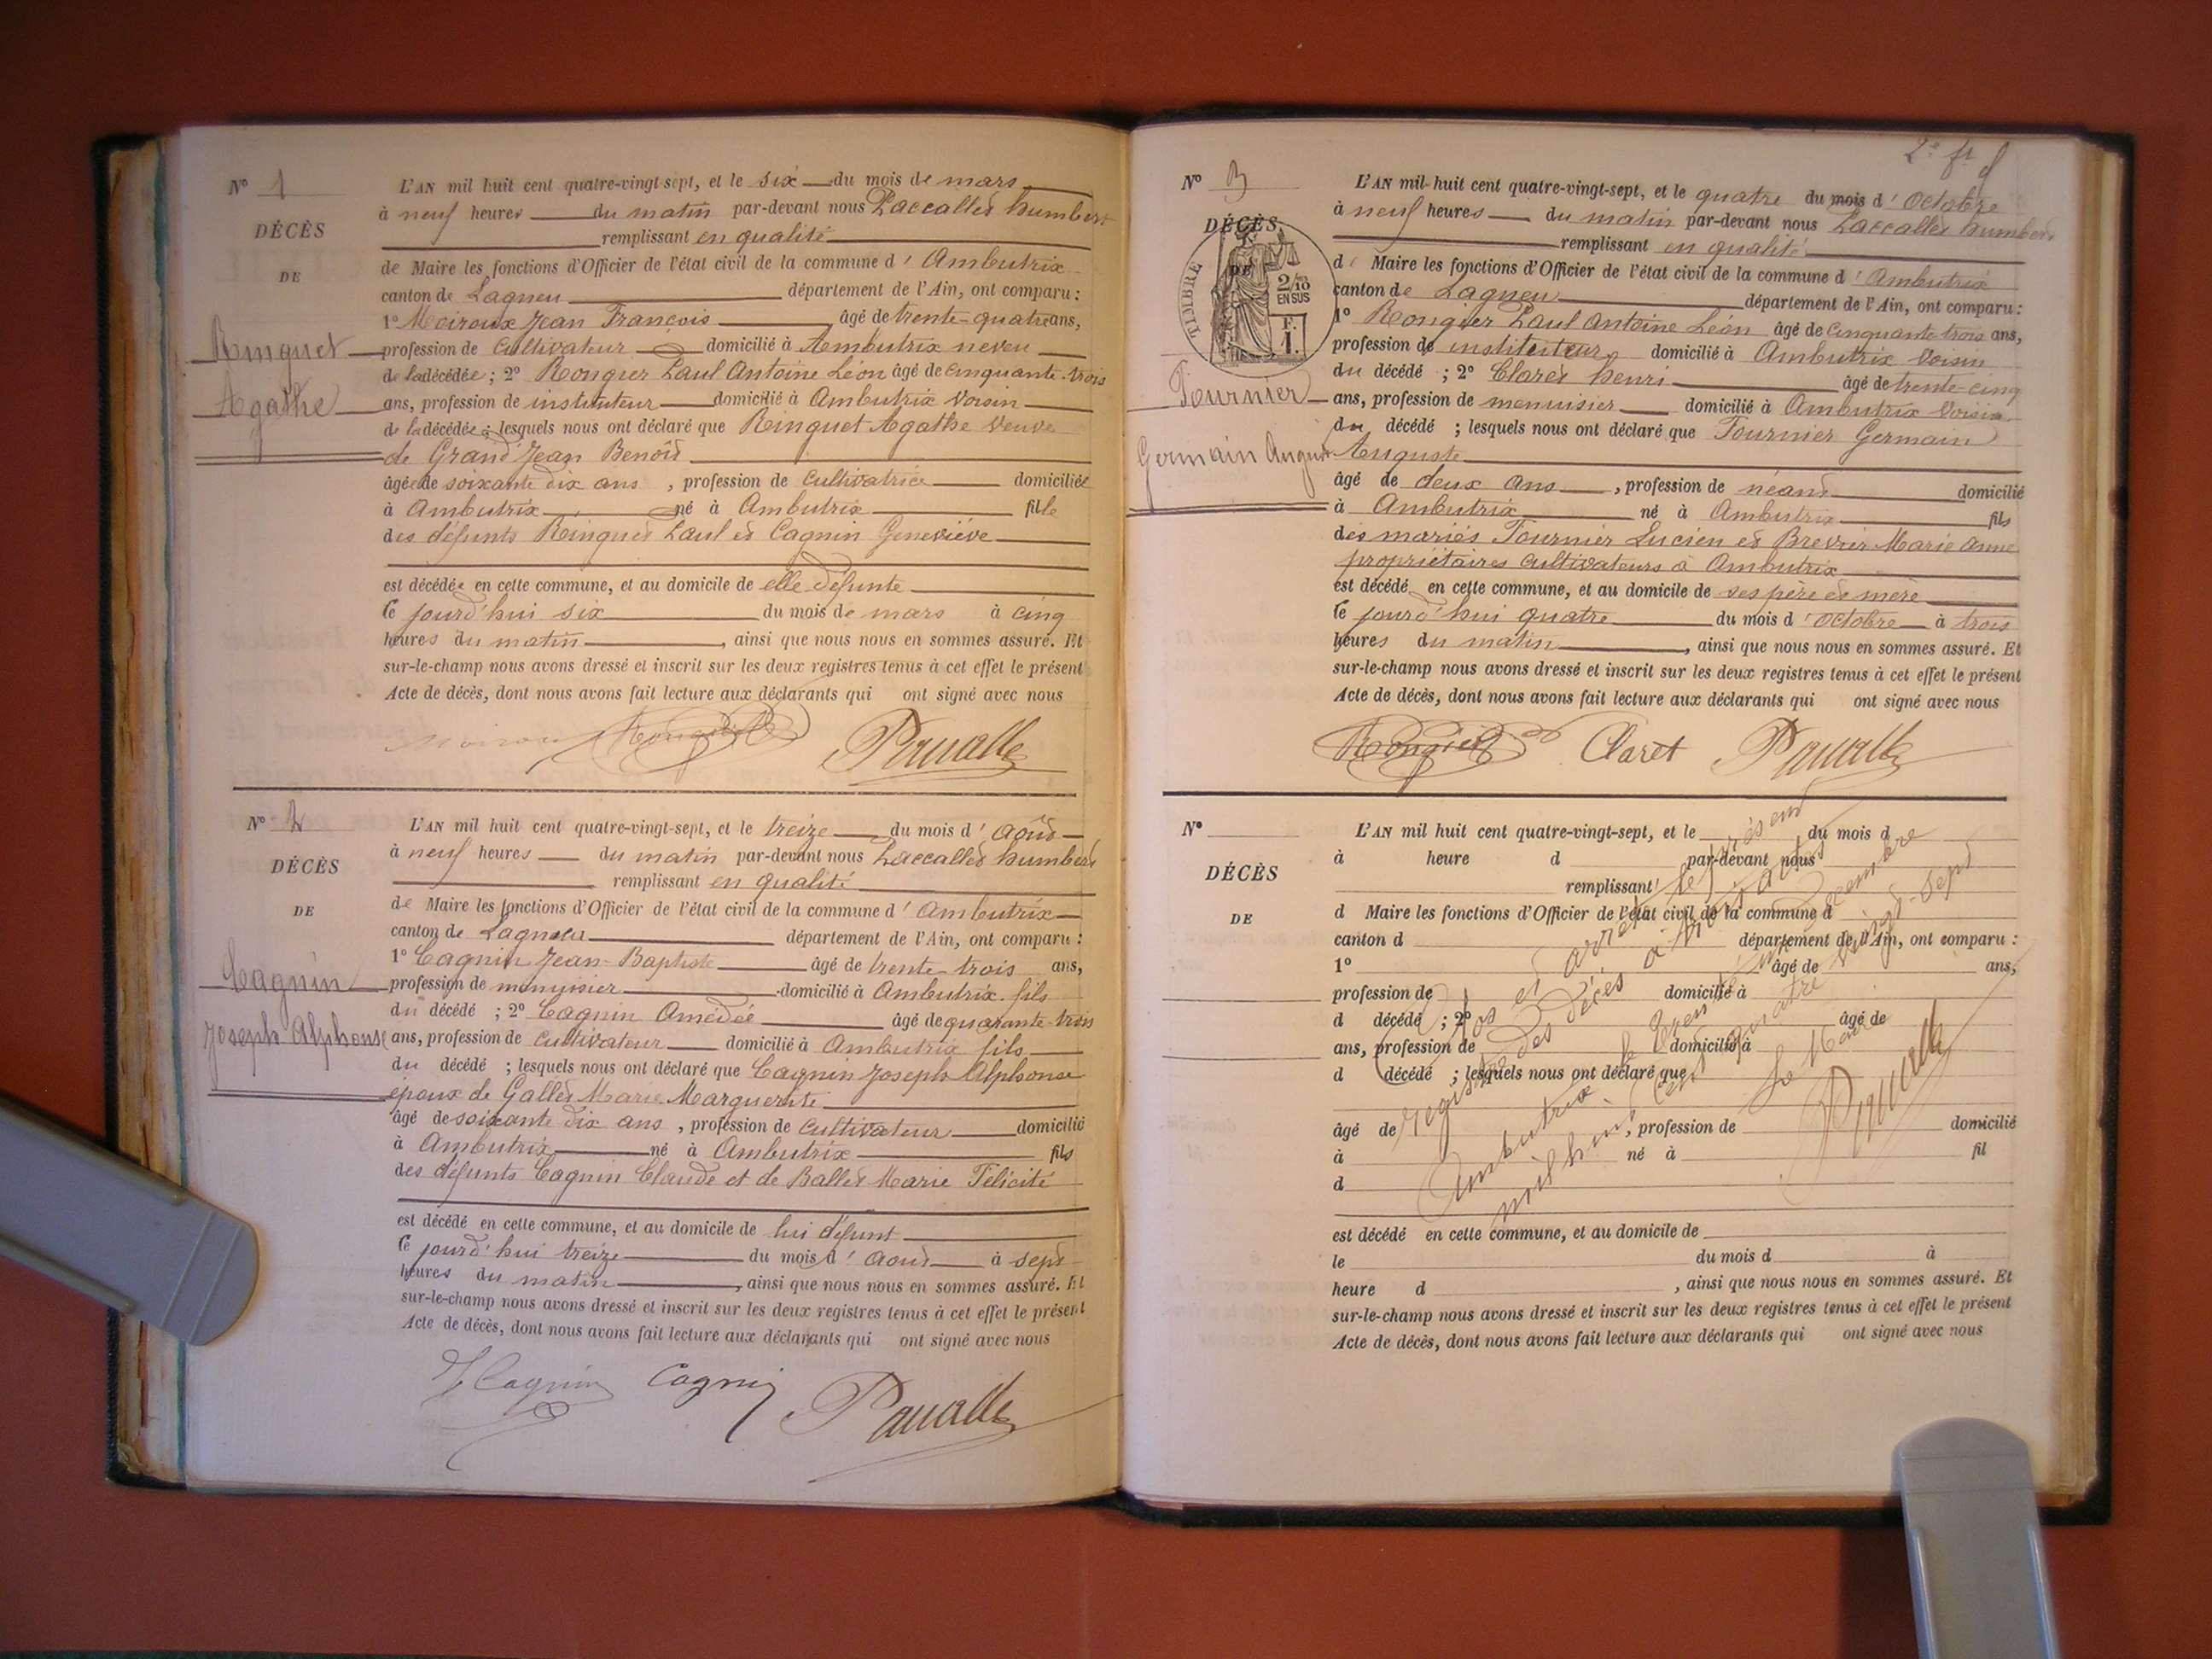 N° 1
DÉCÈS
DE
Rinquet
Agathe
L'AN mil huit cent quatre-vingt-sept, et le six du mois de mars
à neuf heures du matin par-devant nous Paccallet humbert
remplissant en qualité
de Maire les fonctions d'Officier de l'état civil de la commune d' Ambutrix
canton de Lagneu département de l'Ain, ont comparu :
1° Moiroux Jean François âgé de trente-quatre ans,
profession de Cultivateur domicilié à Ambutrix neveu
de la décédée ; 2° Rougier Paul Antoine Léon âgé de cinquante-trois
ans, profession de instituteur domicilié à Ambutrix voisin
de la décédée ; lesquels nous ont déclaré que Rinquet Agathe veuve
de Grand Jean Benoît
âgée de soixante dix ans , profession de cultivatrice domiciliée
à Ambutrix né à Ambutrix fille
des défunts Rinquet Paul et Cagnin Geneviève
est décédée en cette commune, et au domicile de elle défunte
le jourd'hui six du mois de mars à cinq
heures du matin , ainsi que nous nous en sommes assuré. Et
sur-le-champ nous avons dressé et inscrit sur les deux registres tenus à cet effet le présent
Acte de décès, dont nous avons fait lecture aux déclarants qui ont signé avec nous
Moiroux Rougier Paccallet
N° 2
DÉCÈS
DE
Cagnin
Joseph Alphonse
L'AN mil huit cent quatre-vingt-sept, et le treize du mois d' août
à neuf heures du matin par-devant nous Paccallet humbert
remplissant en qualité
de Maire les fonctions d'Officier de l'état civil de la commune d' Ambutrix
canton de Lagneu département de l'Ain, ont comparu :
1° Cagnin Jean-Baptiste âgé de trente-trois ans,
profession de menuisier domicilié à Ambutrix fils
du décédé ; 2° Cagnin Amédée âgé de quarante-trois
ans, profession de cultivateur domicilié à Ambutrix fils
du décédé ; lesquels nous ont déclaré que Cagnin Joseph Alphonse
époux de Gallet Marie Marguerite
âgé de soixante dix ans , profession de cultivateur domicilié
à Ambutrix né à Ambutrix fils
des défunts Cagnin Claude et de Ballet Marie Félicité
est décédé en cette commune, et au domicile de lui défunt
le jourd'hui treize du mois d' août à sept
heures du matin , ainsi que nous nous en sommes assuré. Et
sur-le-champ nous avons dressé et inscrit sur les deux registres tenus à cet effet le présent
Acte de décès, dont nous avons fait lecture aux déclarants qui ont signé avec nous
Cagnin Cagnin Paccallet
N° 3
DÉCÈS
DE
TIMBRE
2/10
EN SUS
F.
1.
Fournier
Germain Auguste
L'AN mil huit cent quatre-vingt-sept, et le quatre du mois d' octobre
à neuf heures du matin par-devant nous Paccallet humbert
remplissant en qualité
de Maire les fonctions d'Officier de l'état civil de la commune d' Ambutrix
canton de Lagneu département de l'Ain, ont comparu :
1° Rougier Paul Antoine Léon âgé de cinquante trois ans,
profession de instituteur domicilié à Ambutrix voisin
du décédé ; 2° Claret henri âgé de trente-cinq
ans, profession de menuisier domicilié à Ambutrix voisin
du décédé ; lesquels nous ont déclaré que Fournier Germain
Auguste
âgé de deux ans , profession de néant domicilié
à Ambutrix né à Ambutrix fils
des mariés Fournier Lucien et Brevier Marie anne
propriétaires cultivateurs à Ambutrix
est décédé en cette commune, et au domicile de ses père et mère
le jourd'hui quatre du mois d' octobre à trois
heures du matin , ainsi que nous nous en sommes assuré. Et
sur-le-champ nous avons dressé et inscrit sur les deux registres tenus à cet effet le présent
Acte de décès, dont nous avons fait lecture aux déclarants qui ont signé avec nous
Rougier Claret Paccallet
N°
DÉCÈS
DE
L'AN mil huit cent quatre-vingt-sept, et le du mois d
à heure d par-devant nous
remplissant
d Maire les fonctions d'Officier de l'état civil de la commune d
canton d département de l'Ain, ont comparu :
1° âgé de ans,
profession de domicilié à
d décédé ; 2° âgé de
ans, profession de domicilié à
d décédé ; lesquels nous ont déclaré que
âgé de , profession de domicilié
à né à fil
d
est décédé en cette commune, et au domicile de
le du mois d à
heure d , ainsi que nous nous en sommes assuré. Et
sur-le-champ nous avons dressé et inscrit sur les deux registres tenus à cet effet le présent
Acte de décès, dont nous avons fait lecture aux déclarants qui ont signé avec nous
Clos et arrêté le présent
registre des décès à trois actes
Ambutrix le trente un décembre
mil huit cent quatre vingt-sept
Le Maire
Paccallet